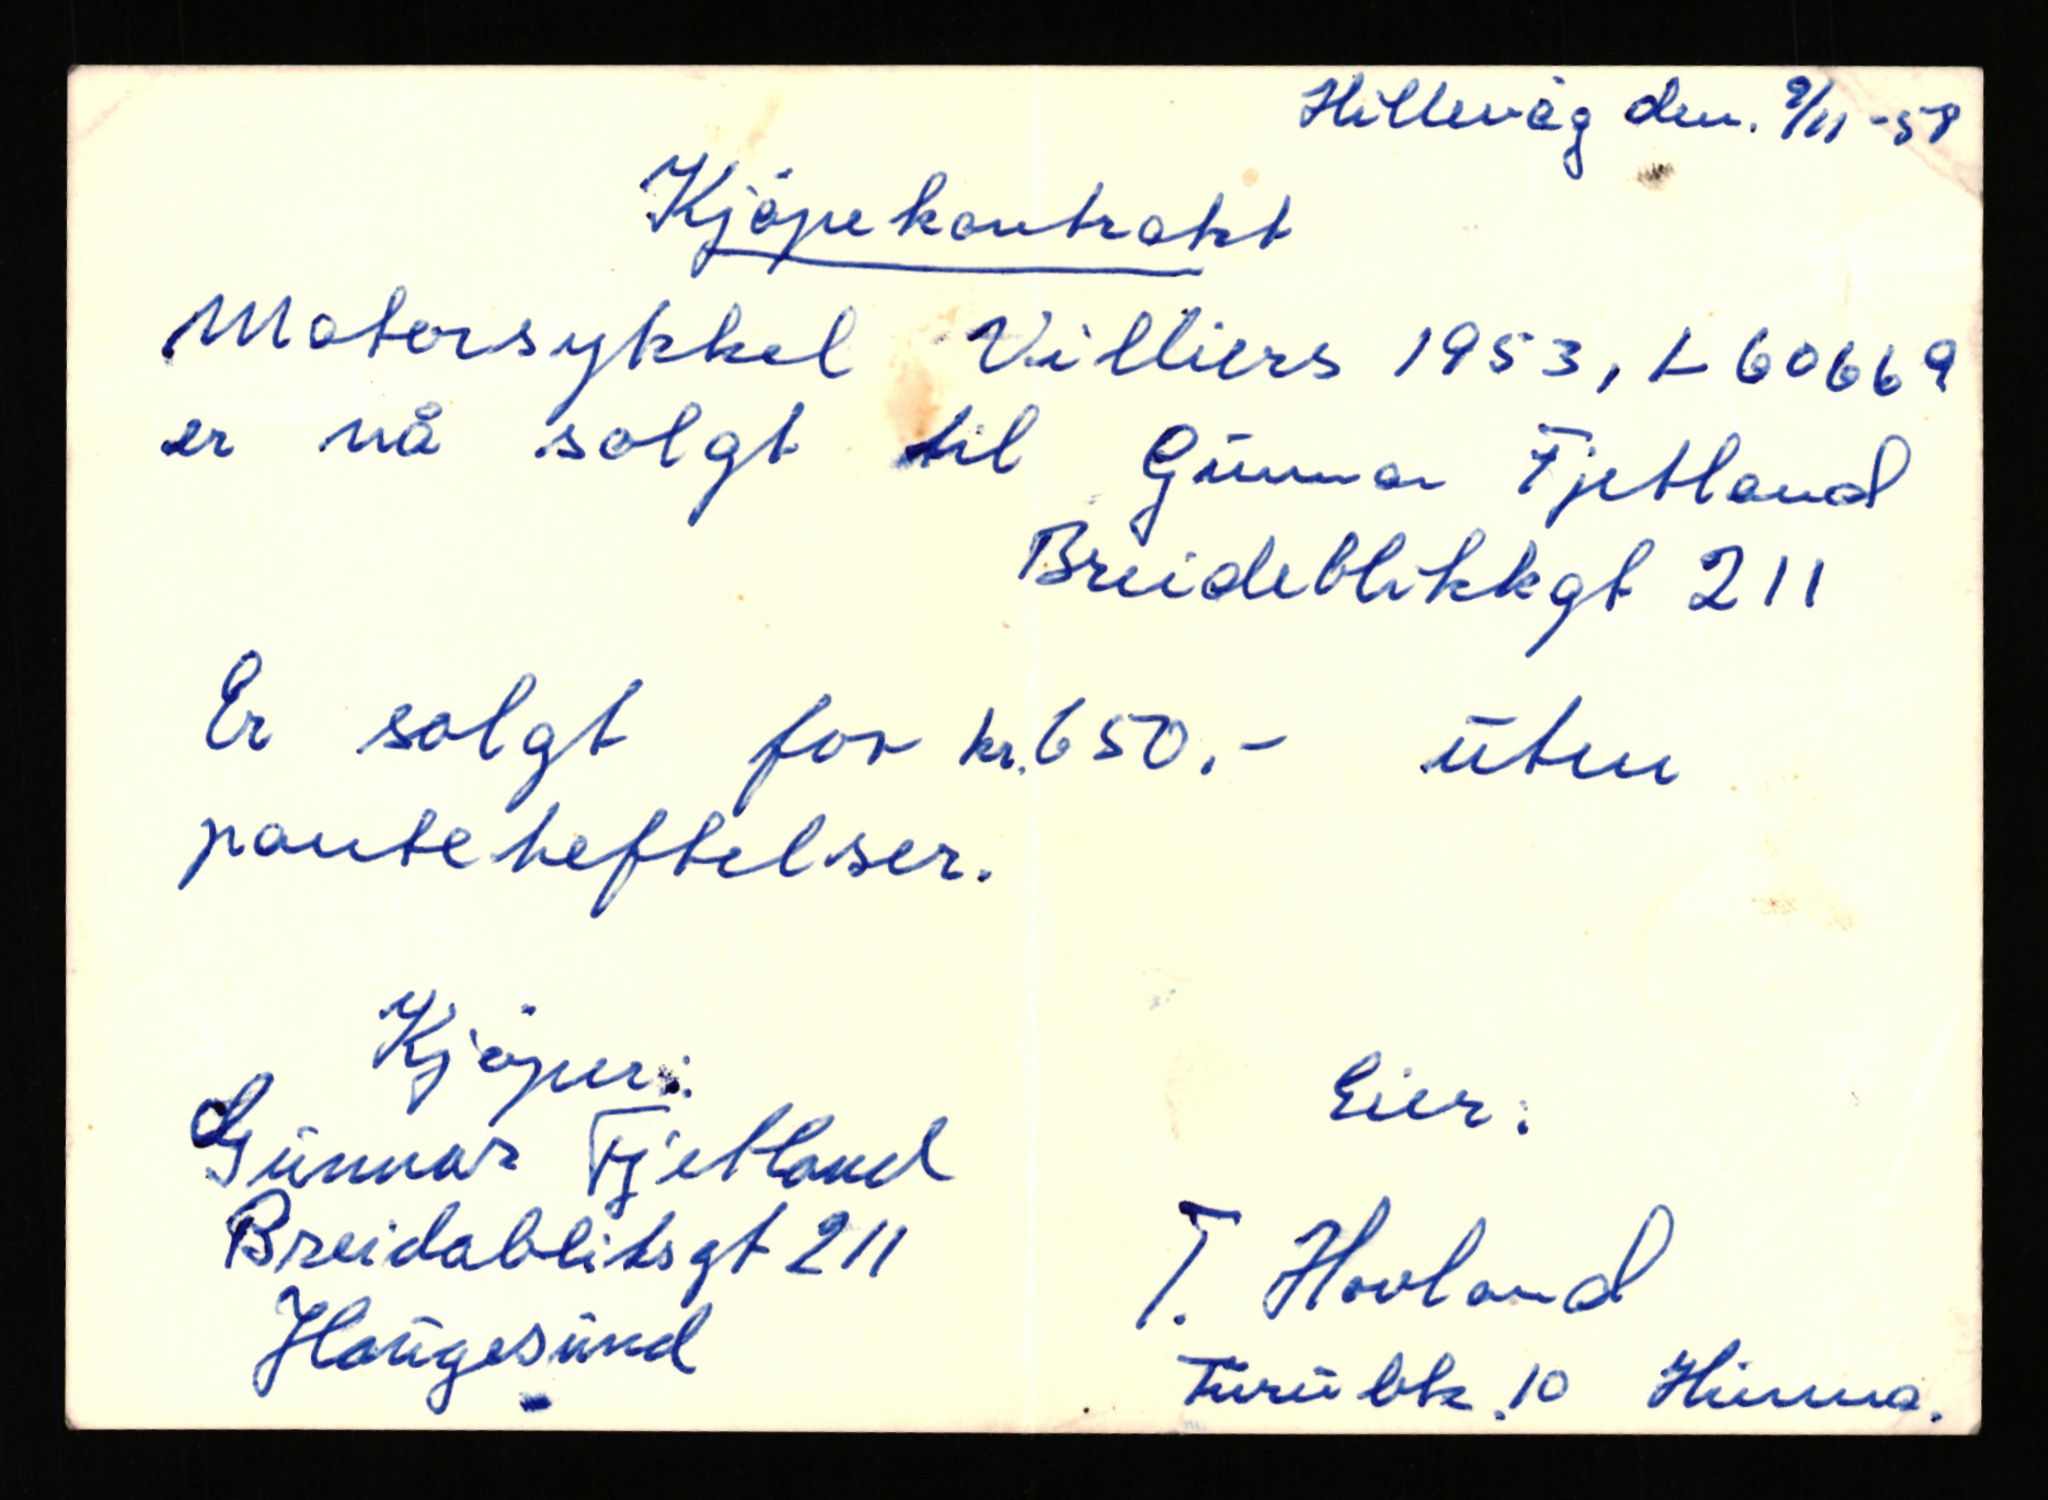 Hillevåg den. 9/11-58
Kjöpekontrakt
Motorsykkel Villiers 1953, L 60669
er nå solgt til Gunnar Fjetland
Breideblikkgt 211
Er solgt for kr. 650,- uten
panteheftelser.
Kjöper:
Gunnar Fjetland
Breidabliksgt 211
Haugesund
Eier:
T. Hovland
10 Hinna.